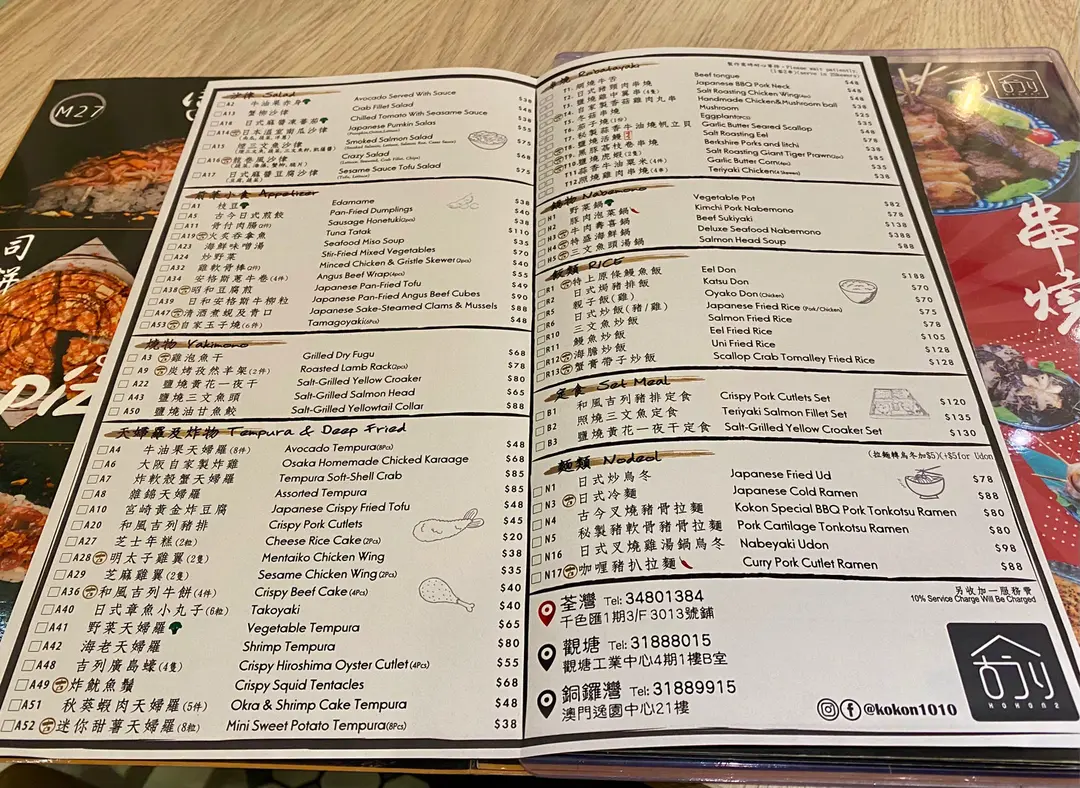 M27
司
餅
沙律 Salad
A2 牛油果赤身 Avocado Served With Sauce $38
A15 蟹柳沙律 Crab Fillet Salad $48
A18 日式麻醬凍番茄 Chilled Tomato With Seasame Sauce $38
A14 日本溫室南瓜沙律 Japanese Pumkin Salad
A15 煙三文魚沙律 Smoked Salmon Salad $75
A16 龍卷風沙律 Crazy Salad $58
A17 日式麻醬豆腐沙律 Sesame Sauce Tofu Salad $75
前菜小食 Appetizer
A1 枝豆 Edamame $38
A5 古今日式煎餃 Pan-Fried Dumplings $40
A11 骨付肉腸(2件) Sausage Honetuki(2pcs) $38
A19 火炙吞拿魚 Tuna Tatak $110
A23 海鮮味噌湯 Seafood Miso Soup $35
A24 炒野菜 Stir-Fried Mixed Vegetables $70
A32 雞軟骨棒(2件) Minced Chicken & Gristle Skewer(2pcs) $40
A34 安格斯蔥牛卷(4件) Angus Beef Wrap(4pcs) $55
A38 昭和豆腐煎 Japanese Pan-Fried Tofu $49
A39 日和安格斯牛柳粒 Japanese Pan-Fried Angus Beef Cubes $90
A47 清酒煮蜆及青口 Japanese Sake-Steamed Clams & Mussels $88
A53 自家玉子燒(6件) Tamagoyaki(6Pcs) $48
燒物 Yakimono
A3 雞泡魚干 Grilled Dry Fugu $68
A9 炭烤孜然羊架(2件) Roasted Lamb Rack(2pcs) $78
A22 鹽燒黃花一夜干 Salt-Grilled Yellow Croaker $80
A43 鹽燒三文魚頭 Salt-Grilled Salmon Head $65
A50 鹽燒油甘魚鮫 Salt-Grilled Yellowtail Collar $88
天婦羅及炸物 Tempura & Deep Fried
A4 牛油果天婦羅(8件) Avocado Tempura(8Pcs) $48
A6 大阪自家製炸雞 Osaka Homemade Chicked Karaage $68
A7 炸軟殼蟹天婦羅 Tempura Soft-Shell Crab $85
A8 雜錦天婦羅 Assorted Tempura $85
A10 宮崎黃金炸豆腐 Japanese Crispy Fried Tofu $48
A20 和風吉列豬排 Crispy Pork Cutlets $45
A27 芝士年糕(2粒) Cheese Rice Cake(2Pcs) $20
A28 明太子雞翼(2隻) Mentaiko Chicken Wing $38
A29 芝麻雞翼(2隻) Sesame Chicken Wing(2Pcs) $35
A36 和風吉列牛餅(4件) Crispy Beef Cake(4Pcs) $40
A40 日式章魚小丸子(6粒) Takoyaki $40
A41 野菜天婦羅 Vegetable Tempura $65
A42 海老天婦羅 Shrimp Tempura $80
A48 吉列廣島蠔(4隻) Crispy Hiroshima Oyster Cutlet(4Pcs) $55
A49 炸魷魚鬚 Crispy Squid Tentacles $68
A51 秋葵蝦肉天婦羅(5件) Okra & Shrimp Cake Tempura $48
A52 迷你甜薯天婦羅(8粒) Mini Sweet Potato Tempura(8Pcs) $38
串燒 Robatayaki
T1. 燒牛舌 Beef tongue $48
T2. 日式豬頸肉串燒 Japanese BBQ Pork Neck $48
T3. 鹽燒雞中翼串(4隻) Salt Roasting Chicken Wing $48
T4. 自家製香菇雞肉丸串 Handmade Chicken&Mushroom ball $38
T5. 冬菇串燒 Mushroom
T6. 茄子燒 Eggplant
T7. 秘製蒜香牛油燒帆立貝 Garlic Butter Seared Scallop
T8. 鹽燒活鰻 Salt Roasting Eel
T9. 黑豚荔枝卷串燒 Berkshire Porks and litchi
T10. 鹽燒虎蝦(2隻) Salt Roasting Giant Tiger Prawn $85
T11. 蒜香牛油粟米(4件) Garlic Butter Corn $35
T12. 照燒雞肉串燒(4串) Teriyaki Chicken $38
鍋物 Nabemono
H1 野菜鍋 Vegetable Pot $82
H2 豚肉泡菜鍋 Kimchi Pork Nabemono $78
H3 牛肉壽喜鍋 Beef Sukiyaki $88
H4 特盛海鮮鍋 Deluxe Seafood Nabemono $388
H5 三文魚頭湯鍋 Salmon Head Soup $88
飯類 RICE
R1 特上原條鰻魚飯 Eel Don $188
R2 日式焗豬排飯 Katsu Don $70
R5 親子飯(雞) Oyako Don (Chicken) $70
R5 日式炒飯(豬/雞) Japanese Fried Rice (Pork/Chicken) $75
R6 三文魚炒飯 Salmon Fried Rice $78
R10 鰻魚炒飯 Eel Fried Rice $105
R12 海膽炒飯 Uni Fried Rice $128
R13 蟹膏帶子炒飯 Scallop Crab Tomalley Fried Rice $128
定食 Set Meal
B1 和風吉列豬排定食 Crispy Pork Cutlets Set $120
B2 照燒三文魚定食 Teriyaki Salmon Fillet Set $135
B3 鹽燒黃花一夜干定食 Salt-Grilled Yellow Croaker Set $130
麵類 Nodeol (拉麵轉烏冬加$5)(+$5for Udon
N1 日式炒烏冬 Japanese Fried Ud $78
N3 日式冷麵 Japanese Cold Ramen $88
N4 古今叉燒豬骨拉麵 Kokon Special BBQ Pork Tonkotsu Ramen $80
N5 秘製豬軟骨豬骨拉麵 Pork Cartilage Tonkotsu Ramen $80
N16 日式叉燒雞湯鍋烏冬 Nabeyaki Udon $98
N17 咖喱豬扒拉麵 Curry Pork Cutlet Ramen $88
另收加一服務費
10% Service Charge Will Be Charged
荃灣 Tel: 34801384
千色匯1期3/F 3013號鋪
觀塘 Tel: 31888015
觀塘工業中心4期1樓B室
銅鑼灣 Tel: 31889915
澳門逸園中心21樓
@kokon1010
KOKON2
串燒